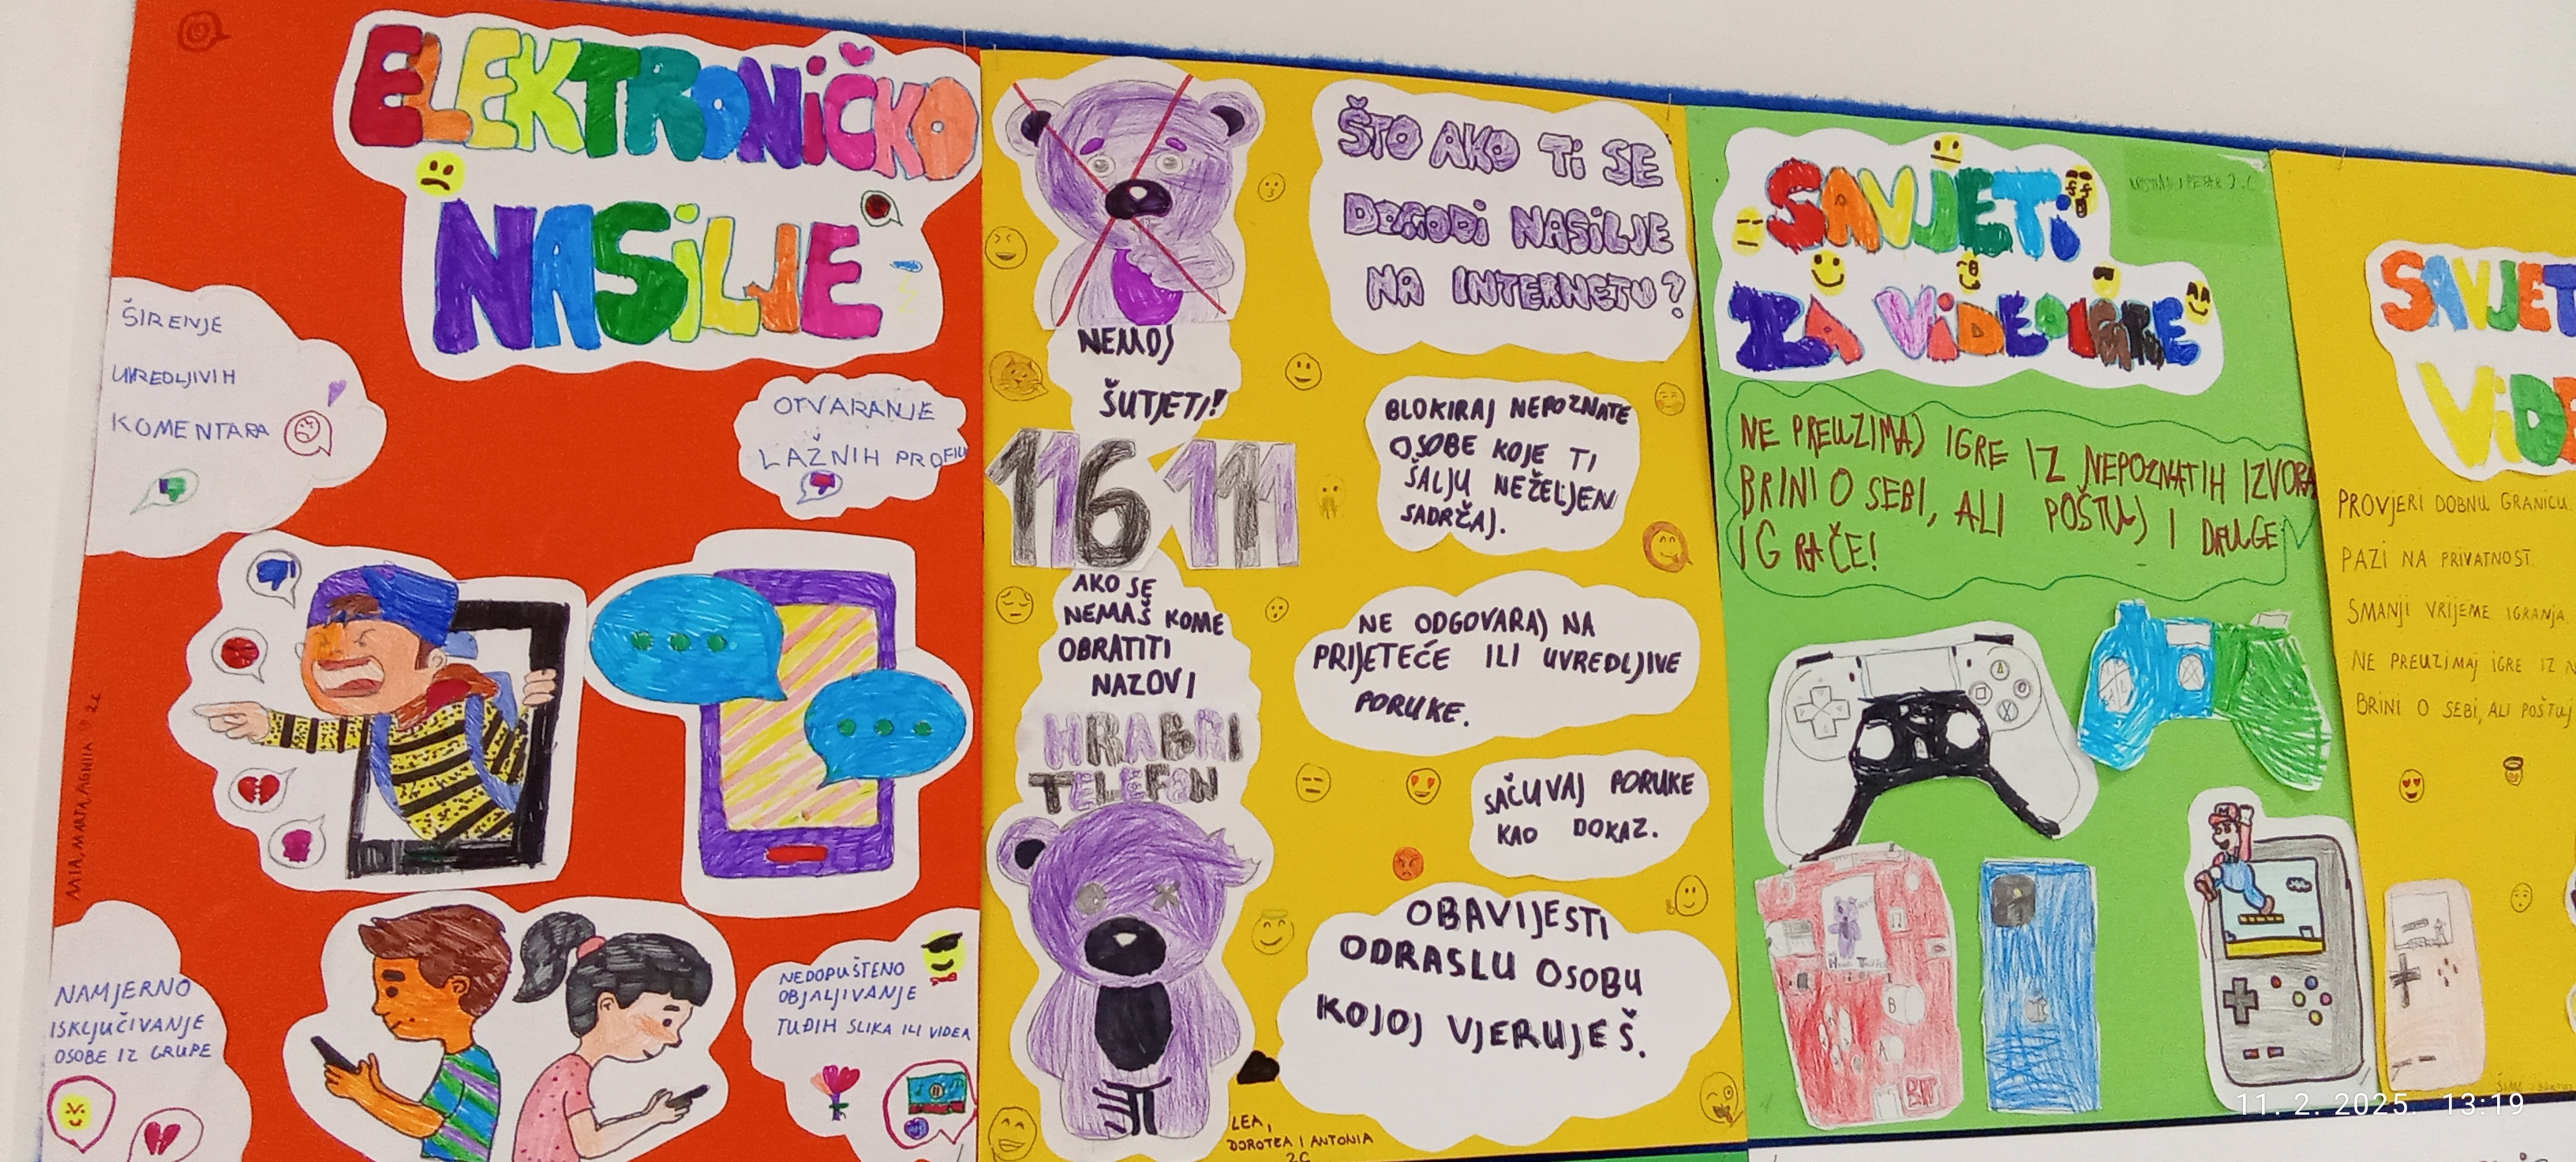 ELEKTRONIČKO
NASILJE
ŠIRENJE
UVREDLJIVIH
KOMENTARA
OTVARANJE
LAŽNIH PROFILA
NAMJERNO
ISKLJUČIVANJE
OSOBE IZ GRUPE
NEDOPUŠTENO
OBJALJIVANJE
TUĐIH SLIKA ILI VIDEA
MIA, MARTA, AGNIJA 2C
NEMOJ
ŠUTJETI!
116 111
AKO SE
NEMAŠ KOME
OBRATITI
NAZOVI
HRABRI
TELEFON
ŠTO AKO TI SE
DOGODI NASILJE
NA INTERNETU?
BLOKIRAJ NEPOZNATE
OSOBE KOJE TI
ŠALJU NEŽELJEN
SADRŽAJ.
NE ODGOVARAJ NA
PRIJETEĆE ILI UVREDLJIVE
PORUKE.
SAČUVAJ PORUKE
KAO DOKAZ.
OBAVIJESTI
ODRASLU OSOBU
KOJOJ VJERUJEŠ.
LEA,
DOROTEA I ANTONIA
2C
SAVJETI
ZA VIDEOIGRE
NE PREUZIMAJ IGRE IZ NEPOZNATIH IZVORA
BRINI O SEBI, ALI POŠTUJ I DRUGE
IGRAČE!
B
A
BIT
SAVJET
VIDE
PROVJERI DOBNU GRANICU.
PAZI NA PRIVATNOST.
SMANJI VRIJEME IGRANJA
NE PREUZIMAJ IGRE IZ N
BRINI O SEBI, ALI POŠTUJ
11. 2. 2025. 13:19